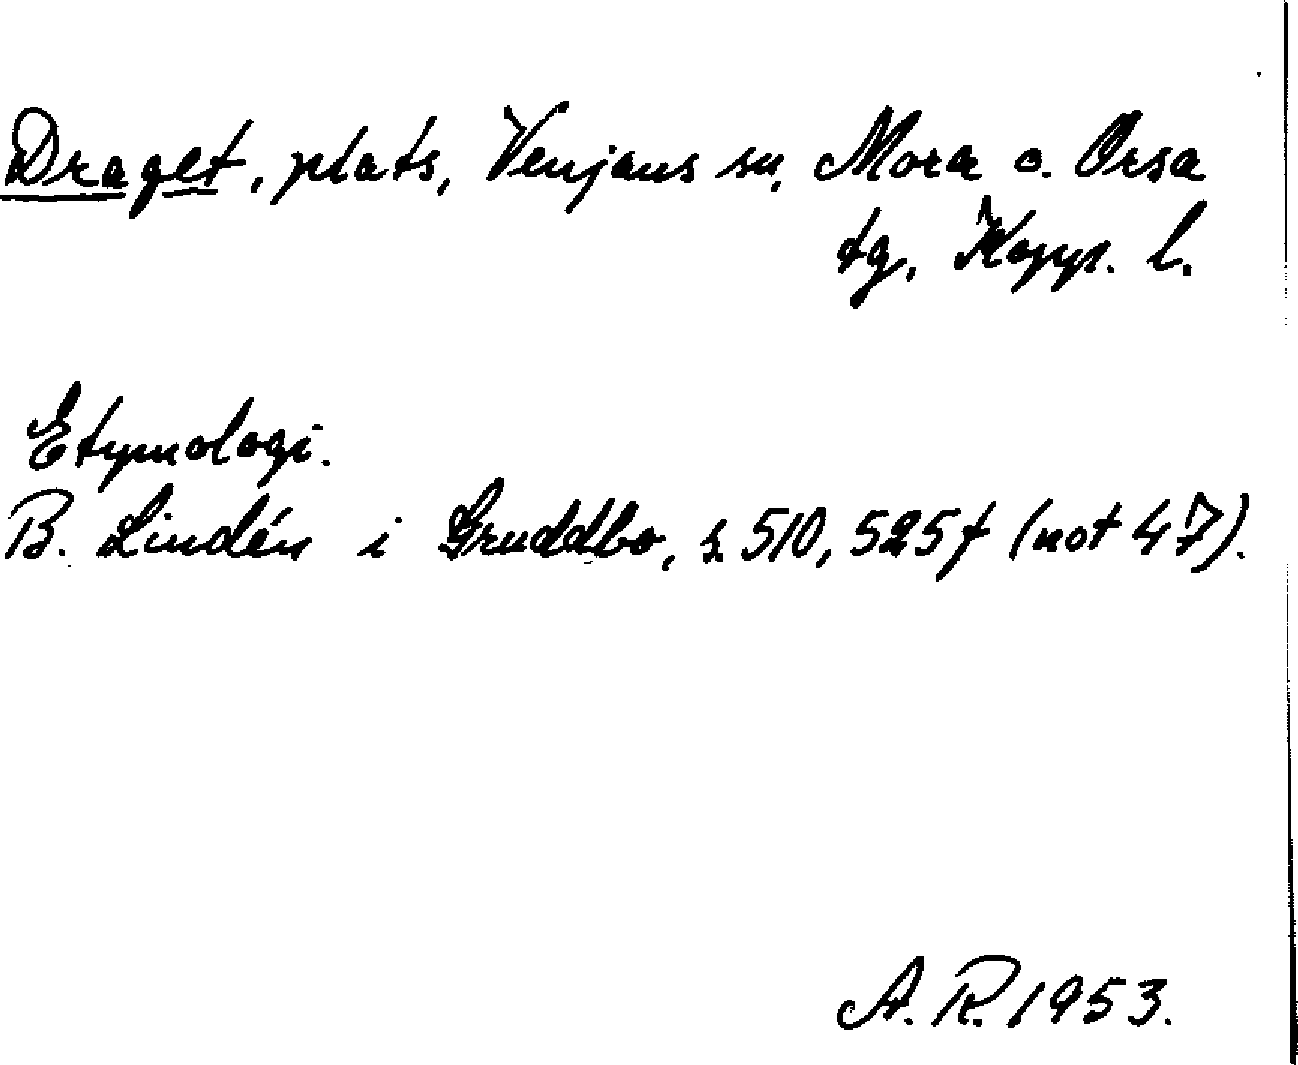 Draget, plats, Venjans sn, Mora o. Orsa
tg, Kopp. l.
Etymologi.
B. Lindén i Gruddbo, s 510, 525 f (not 47).
A. R. 1953.